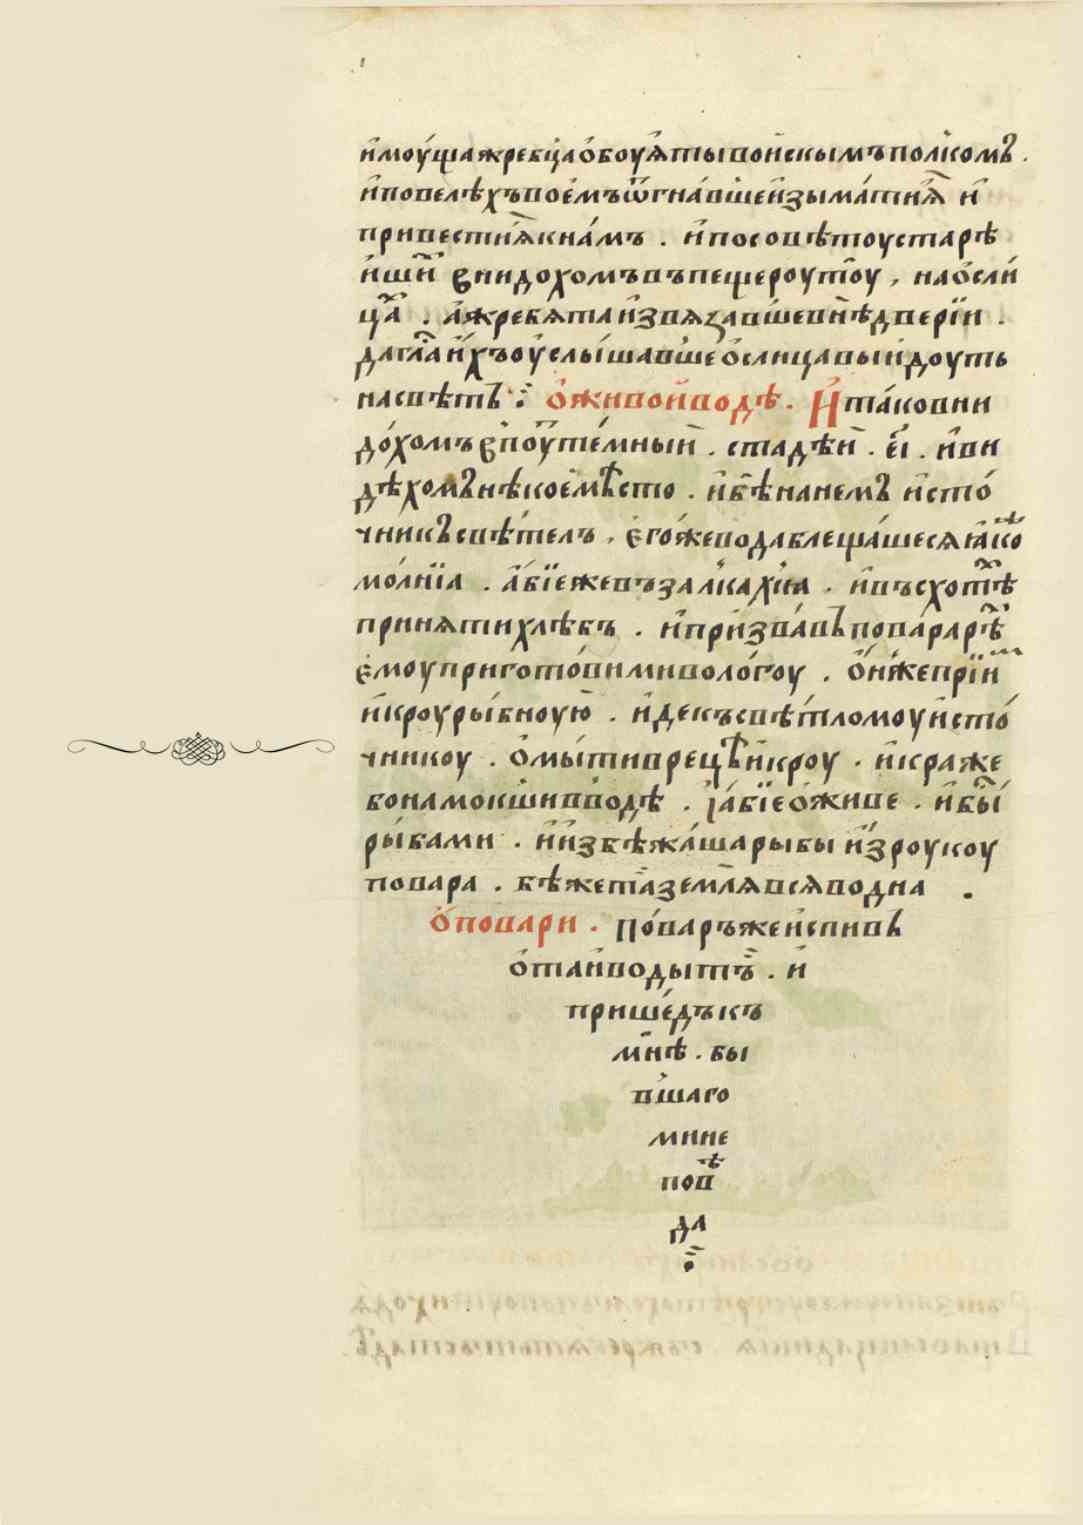 имоуща жребца обоуѧты воискымъ полкомъ .
и повелѣхъ воемъ ѿгнавше изыматиѧ и
привестиѧ к намъ . и по совѣтоу старѣ
ишиⷯ внидохомъ въ пещероу тоу , на осли
цаⷯ . а жребѧта извѧзавше внѣ двери .
да гла ихъ оуслышавше ослица выидоуть
на свѣтъ : о живои водѣ . И тако вни
дохомъ в поуⷮ темныи . стадеи . еı . и ви
дѣхомъ нѣкое мѣсто . и бѣ на немъ исто
чникъ свѣтелъ . егоже вода блещашесѧ ꙗко
молнїа . абїе же възалкахсѧ . и въсхотѣⷯ
приѧти хлѣбъ . и призвавъ повара рѣⷯ
емоу приготови ми вологоу . онⸯже прїиⷨ
икроу рыбноую . иде къ свѣтломоу исто
чникоу . омыти в рецѣ икроу . икра же
бо намокши в водѣ . и абїе оживе . и быⷭ
рыбами . и избѣжаша рыбы из роукоу
повара . бѣ же та землѧ всѧ водна .
О повари . поваръ же испивъ
отаи воды тъ . и
пришедъ къ
мнѣ . бы
вшаго
ми не
повѣ
да